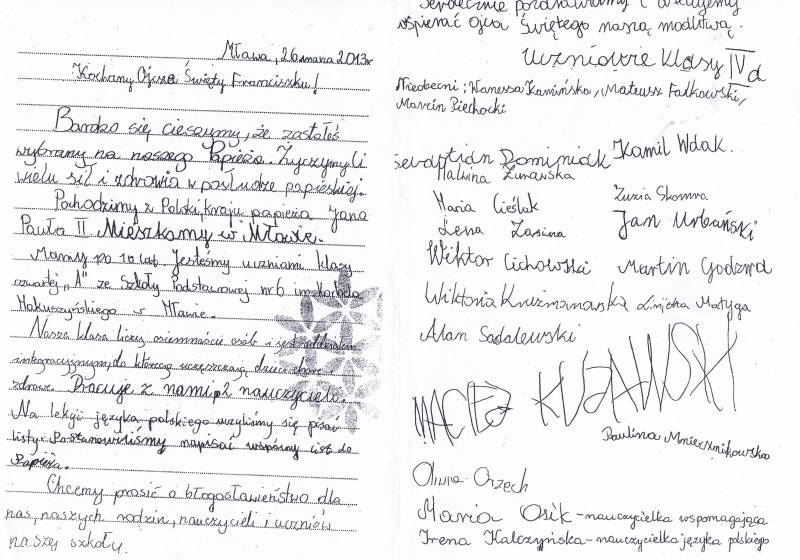 Mława, 26 marca 2013r
Kochany Ojcze Święty Franciszku!
Bardzo się cieszymy, że zostałeś
wybrany na naszego Papieża. Życzymy Ci
wielu sił i zdrowia w posłudze papieskiej.
Pochodzimy z Polski, kraju papieża Jana
Pawła II Mieszkamy w Mławie.
Mamy po 10 lat. Jesteśmy uczniami klasy
czwartej „A" ze Szkoły Podstawowej nr 6 im. Kornela
Makuszyńskiego w Mławie.
Nasza klasa liczy osiemnaście osób i jest oddziałem
integracyjnym, do którego uczęszczają dzieci chore i
zdrowe. Pracuje z nami 2 nauczycieli.
Na lekcji języka polskiego uczyliśmy się pisać
listy. Postanowiliśmy napisać wspólny list do
Papieża.
Chcemy prosić o błogosławieństwo dla
nas, naszych rodzin, nauczycieli i uczniów
naszej szkoły.
Serdecznie pozdrawiamy i
wspierać Ojca Świętego naszą modlitwą.
Uczniowie klasy IV d
Nieobecni: Wanessa Kamińska, Mateusz Falkowski,
Marcin Piechocki
Sebastian Dominiak Kamil Wdak.
Malwina Żurawska
Maria Cieślak Zuzia Skomra
Lena Zasina Jan Urbański
Wiktor Cichowski Martin Godzwa
Wiktoria Kuźmanowska Matyga
Alan Sadalewski
MACIEJ KUJAWSKI
Paulina
Oliwia Orzech
Maria Osik - nauczycielka wspomagająca
Irena Kalczyńska - nauczycielka języka polskiego